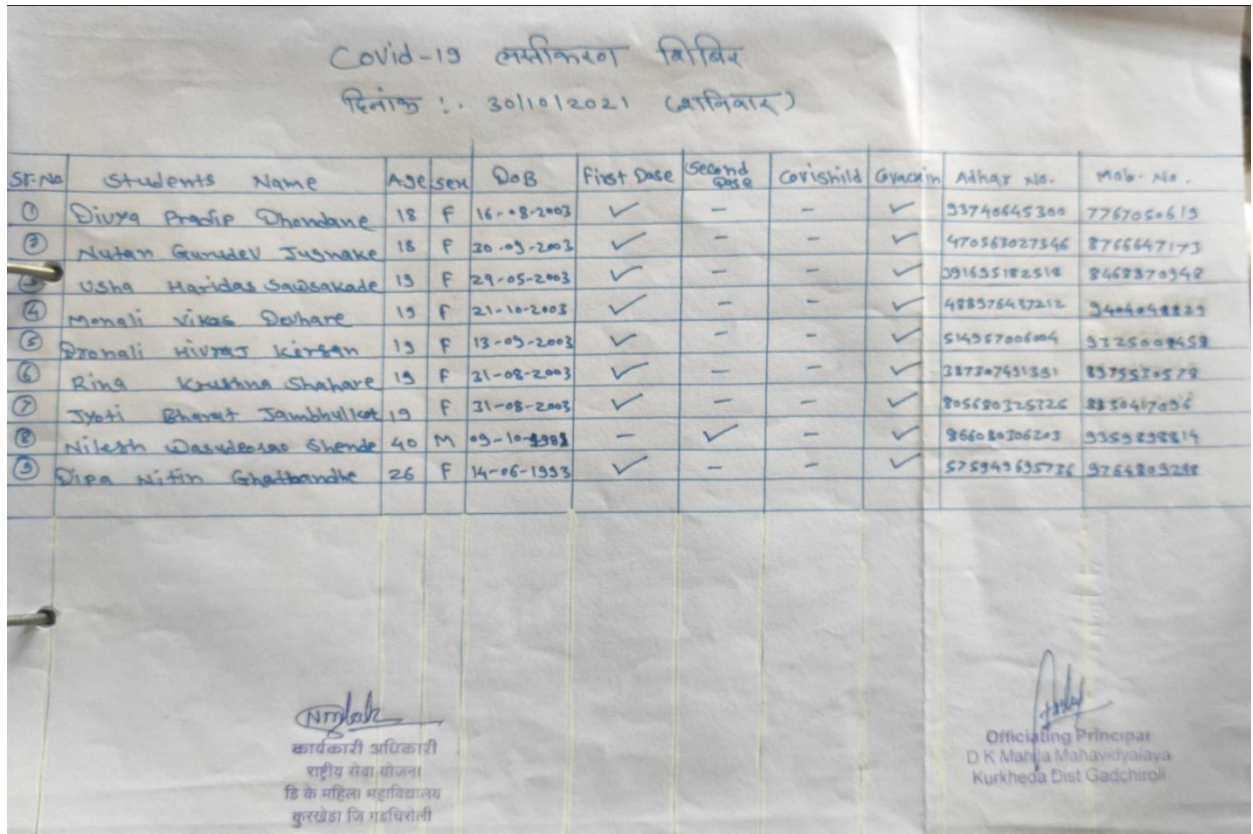 Covid-19 लसीकरण शिबिर
दिनांक :. 30/10/2021 (शनिवार)
Sr.No Students Name Age Sex DoB First Dose Second Dose Covishild Covaxin Adhar No. Mob. No.
1 Divya Pradip Dhondane 18 F 16-08-2003 ✓ - - ✓ 93740645300 7767050619
2 Nutan Gurudev Jugnake 18 F 30-09-2003 ✓ - - ✓ 470563027346 8766647173
3 Usha Haridas Sawsakade 19 F 29-05-2003 ✓ - - ✓ 391695182518 8468970948
4 Monali Vikas Devhare 19 F 21-10-2003 ✓ - - ✓ 488976437212
5 Hivraj Kirsan 19 F 13-09-2003 ✓ - - ✓ 514957006004
6 Rina Krushna Shahare 19 F 31-08-2003 ✓ - - ✓
7 Jyoti Bharat 19 F 31-08-2003 ✓ - - ✓ 805680325326
8 Nilesh Wasudeorao Shende 40 M - ✓ - ✓ 9359898814
9 Dipa Nitin 26 F 14-06-1993 ✓ - - ✓ 575949695736
कार्यकारी अधिकारी
राष्ट्रीय सेवा योजना
डि के महिला महाविद्यालय
कुरखेडा जि गडचिरोली
Officiating Principal
D K Mahila Mahavidyalaya
Kurkheda Dist Gadchiroli